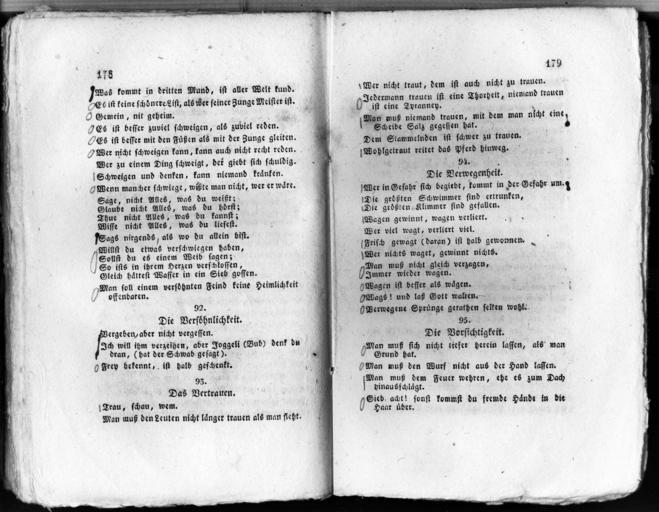 178
Was kommt in dritten Mund, ist aller Welt kund.
Es ist keine schönere List, als wer seiner Zunge Meister ist.
Gemein, nit geheim.
Es ist besser zuviel schweigen, als zuviel reden.
Es ist besser mit den Füßen als mit der Zunge gleiten.
Wer nicht schweigen kann, kann auch nicht recht reden.
Wer zu einem Ding schweigt, der giebt sich schuldig.
Schweigen und denken, kann niemand kränken.
Wenn mancher schwiege, wüßte man nicht, wer er wäre.
Sage, nicht Alles, was du weißt;
Glaube nicht Alles, was du hörst;
Thue nicht Alles, was du kannst;
Wisse nicht Alles, was du liesest.
Sags nirgends, als wo du allein bist.
Willst du etwas verschwiegen haben,
Sollst du es einem Weib sagen;
So ists in ihrem Herzen verschlossen,
Gleich hättest Wasser in ein Sieb gossen.
Man soll einem versöhnten Feind keine Heimlichkeit
offenbaren.
92.
Die Versöhnlichkeit.
Vergeben, aber nicht vergessen.
Ich will ihm verzeihen, aber Joggeli (Bub) denk du
dran, (hat der Schwab gesagt).
Frey bekennt, ist halb geschenkt.
93.
Das Vertrauen.
Trau, schau, wem.
Man muß den Leuten nicht länger trauen als man sieht.
179
Wer nicht traut, dem ist auch nicht zu trauen.
Jedermann trauen ist eine Thorheit, niemand trauen
ist eine Tyranney.
Man muß niemand trauen, mit dem man nicht eine
Scheibe Salz gegessen hat.
Dem Stammelnden ist schwer zu trauen.
Wohlgetraut reitet das Pferd hinweg.
94.
Die Verwegenheit.
Wer in Gefahr sich begiebt, kommt in der Gefahr um.
Die größten Schwimmer sind ertrunken,
Die größten Klimmer sind gefallen.
Wagen gewinnt, wagen verliert.
Wer viel wagt, verliert viel.
Frisch gewagt (daran) ist halb gewonnen.
Wer nichts waget, gewinnt nichts.
Man muß nicht gleich verzagen,
Immer wieder wagen.
Wagen ist besser als wägen.
Wags! und laß Gott walten.
Verwegene Sprünge gerathen selten wohl.
95.
Die Vorsichtigkeit.
Man muß sich nicht tiefer herein lassen, als man
Grund hat.
Man muß den Wurf nicht aus der Hand lassen.
Man muß dem Feuer wehren, ehe es zum Dach
hinausschlägt.
Sieb acht! sonst kommst du fremde Hände in die
Haar über.